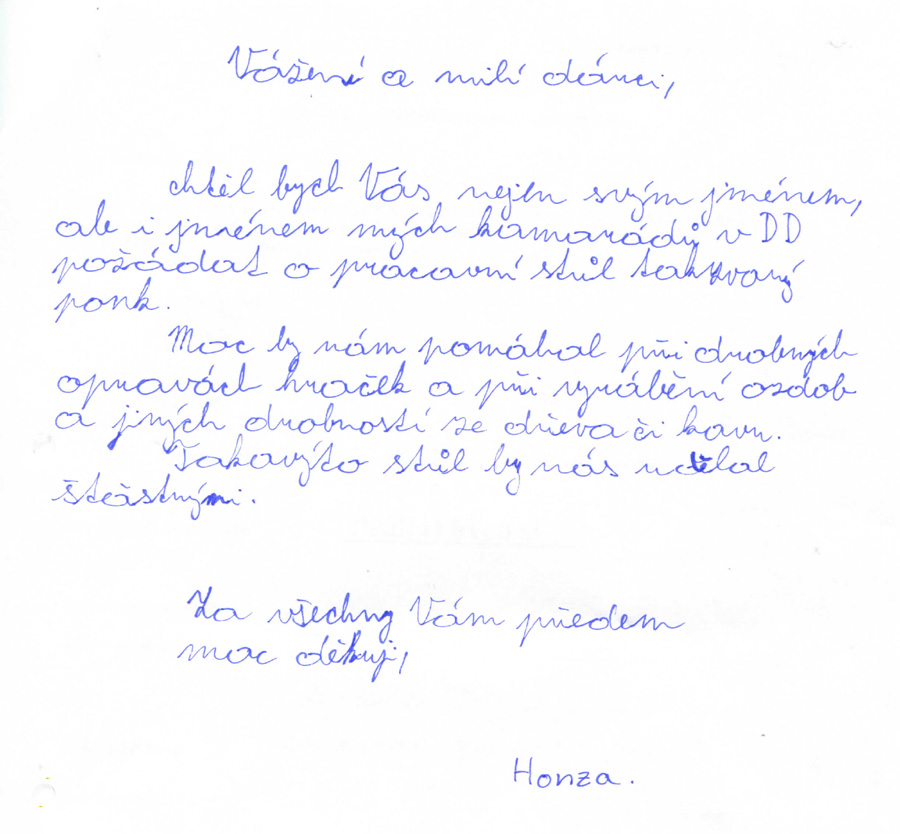 Vážení a milí dárci,
chtěl bych Vás nejen svým jménem,
ale i jménem mých kamarádů v DD
požádat o pracovní stůl takzvaný
ponk.
Moc by nám pomáhal při drobných
opravách hraček a při vyrábění ozdob
a jiných drobností ze dřeva či kovu.
Takovýto stůl by nás udělal
šťastnými.
Za všechny Vám předem
moc děkuji,
Honza.